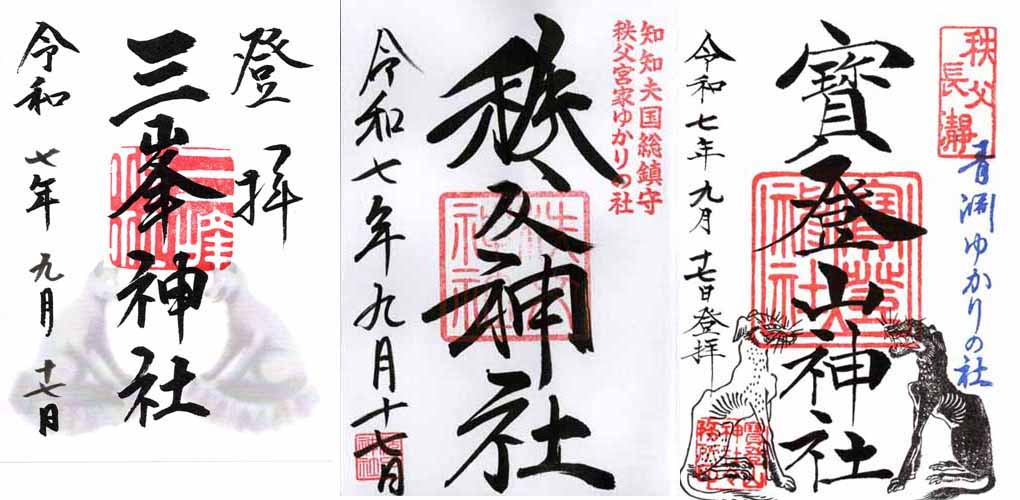 登拝
三峯神社
令和七年九月十七日
知知夫国総鎮守
秩父宮家ゆかりの社
秩父神社
令和七年九月十七日
秩父
長瀞
青淵ゆかりの社
寳登山神社
令和七年九月十七日登拝